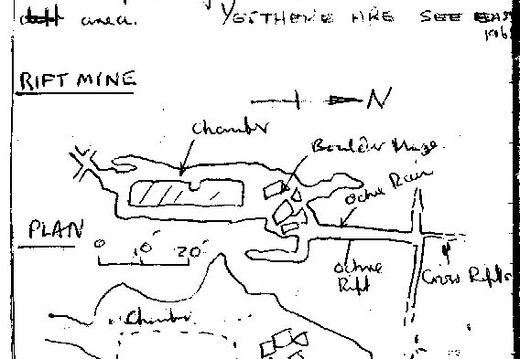 area. YGITHENE ARE SEE EAS
196
RIFT MINE
N
Chamber
Boulder Maze
Ochre Rain
PLAN
0 10' 20'
Ochre
Rift
Cross Rift
Chamber